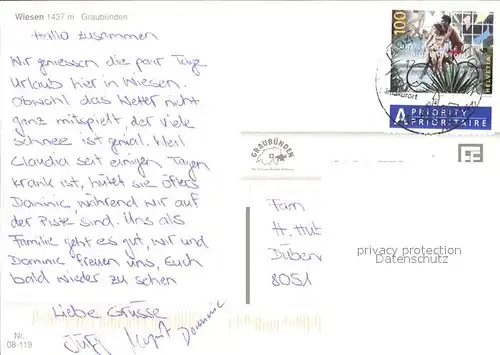 Wiesen 1437 m Graubünden
Hallo zusammen
Wir geniessen die paar Tage
Urlaub hier in Wiesen.
Obwohl das Wetter nicht
ganz mitspielt, der viele
schnee ist genial. Weil
Claudia seit einigen Tagen
krank ist, hütet sie öfters
Dominic, während wir auf
der Piste sind. Uns als
Familie geht es gut, wir und
Dominic freuen uns, Euch
bald wieder zu sehen
Liebe Grüsse
Dominic
Nr.
08-119
100
HELVETIA
A PRIORITY
PRIORITAIRE
GRAUBÜNDEN
Fam
H. Hut
Düben
8051
privacy protection
Datenschutz